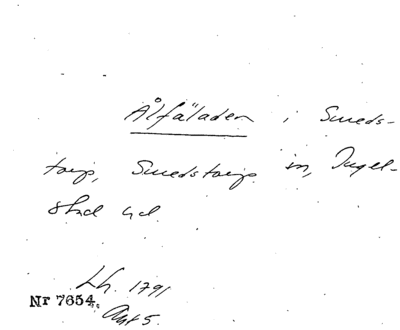 Ålfäladen i Smeds-
torp, Smedstorps sn, Ingel-
stad hd
Lh. 1791
Nr 7654.
Akt 5.